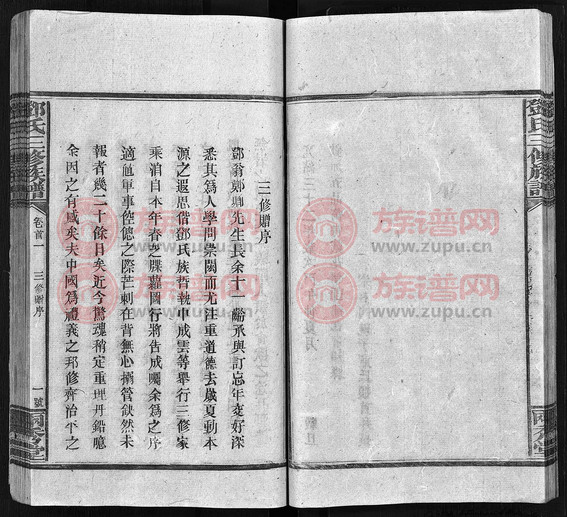 鄧氏三修族譜
三修贈序
鄧翁鄭卿先生長余十一齡承與訂忘年交好深
悉其爲人學問崇閎而尤注重道德去歲夏動本
源之遐思偕鄧氏族晢執中成雲等舉行三修家
乘消自本年者之牒蘿圖行將告成囑余爲之序
適値軍事倥傯之際芒刺在背無心搦管欿然未
報者幾二十餘日矣近今驚魂稍定重理丹鉛噫
余因之有感矣夫中國爲禮義之邦修齊治平之
鄧氏三修族譜
卷首一
三修贈序
一號
族谱网
www.zupu.cn
族谱网
www.zupu.cn
族谱网
www.zupu.cn
族谱网
www.zupu.cn